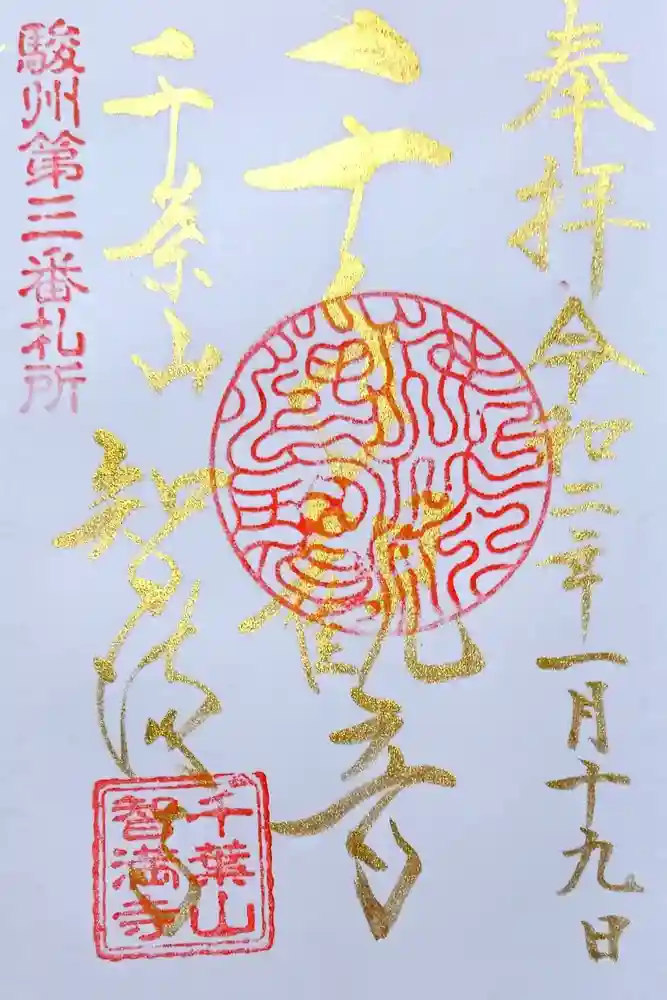 奉拝 令和二年一月十九日
千手観音
千葉山 智満寺
駿州第三番札所
千葉山
智満寺